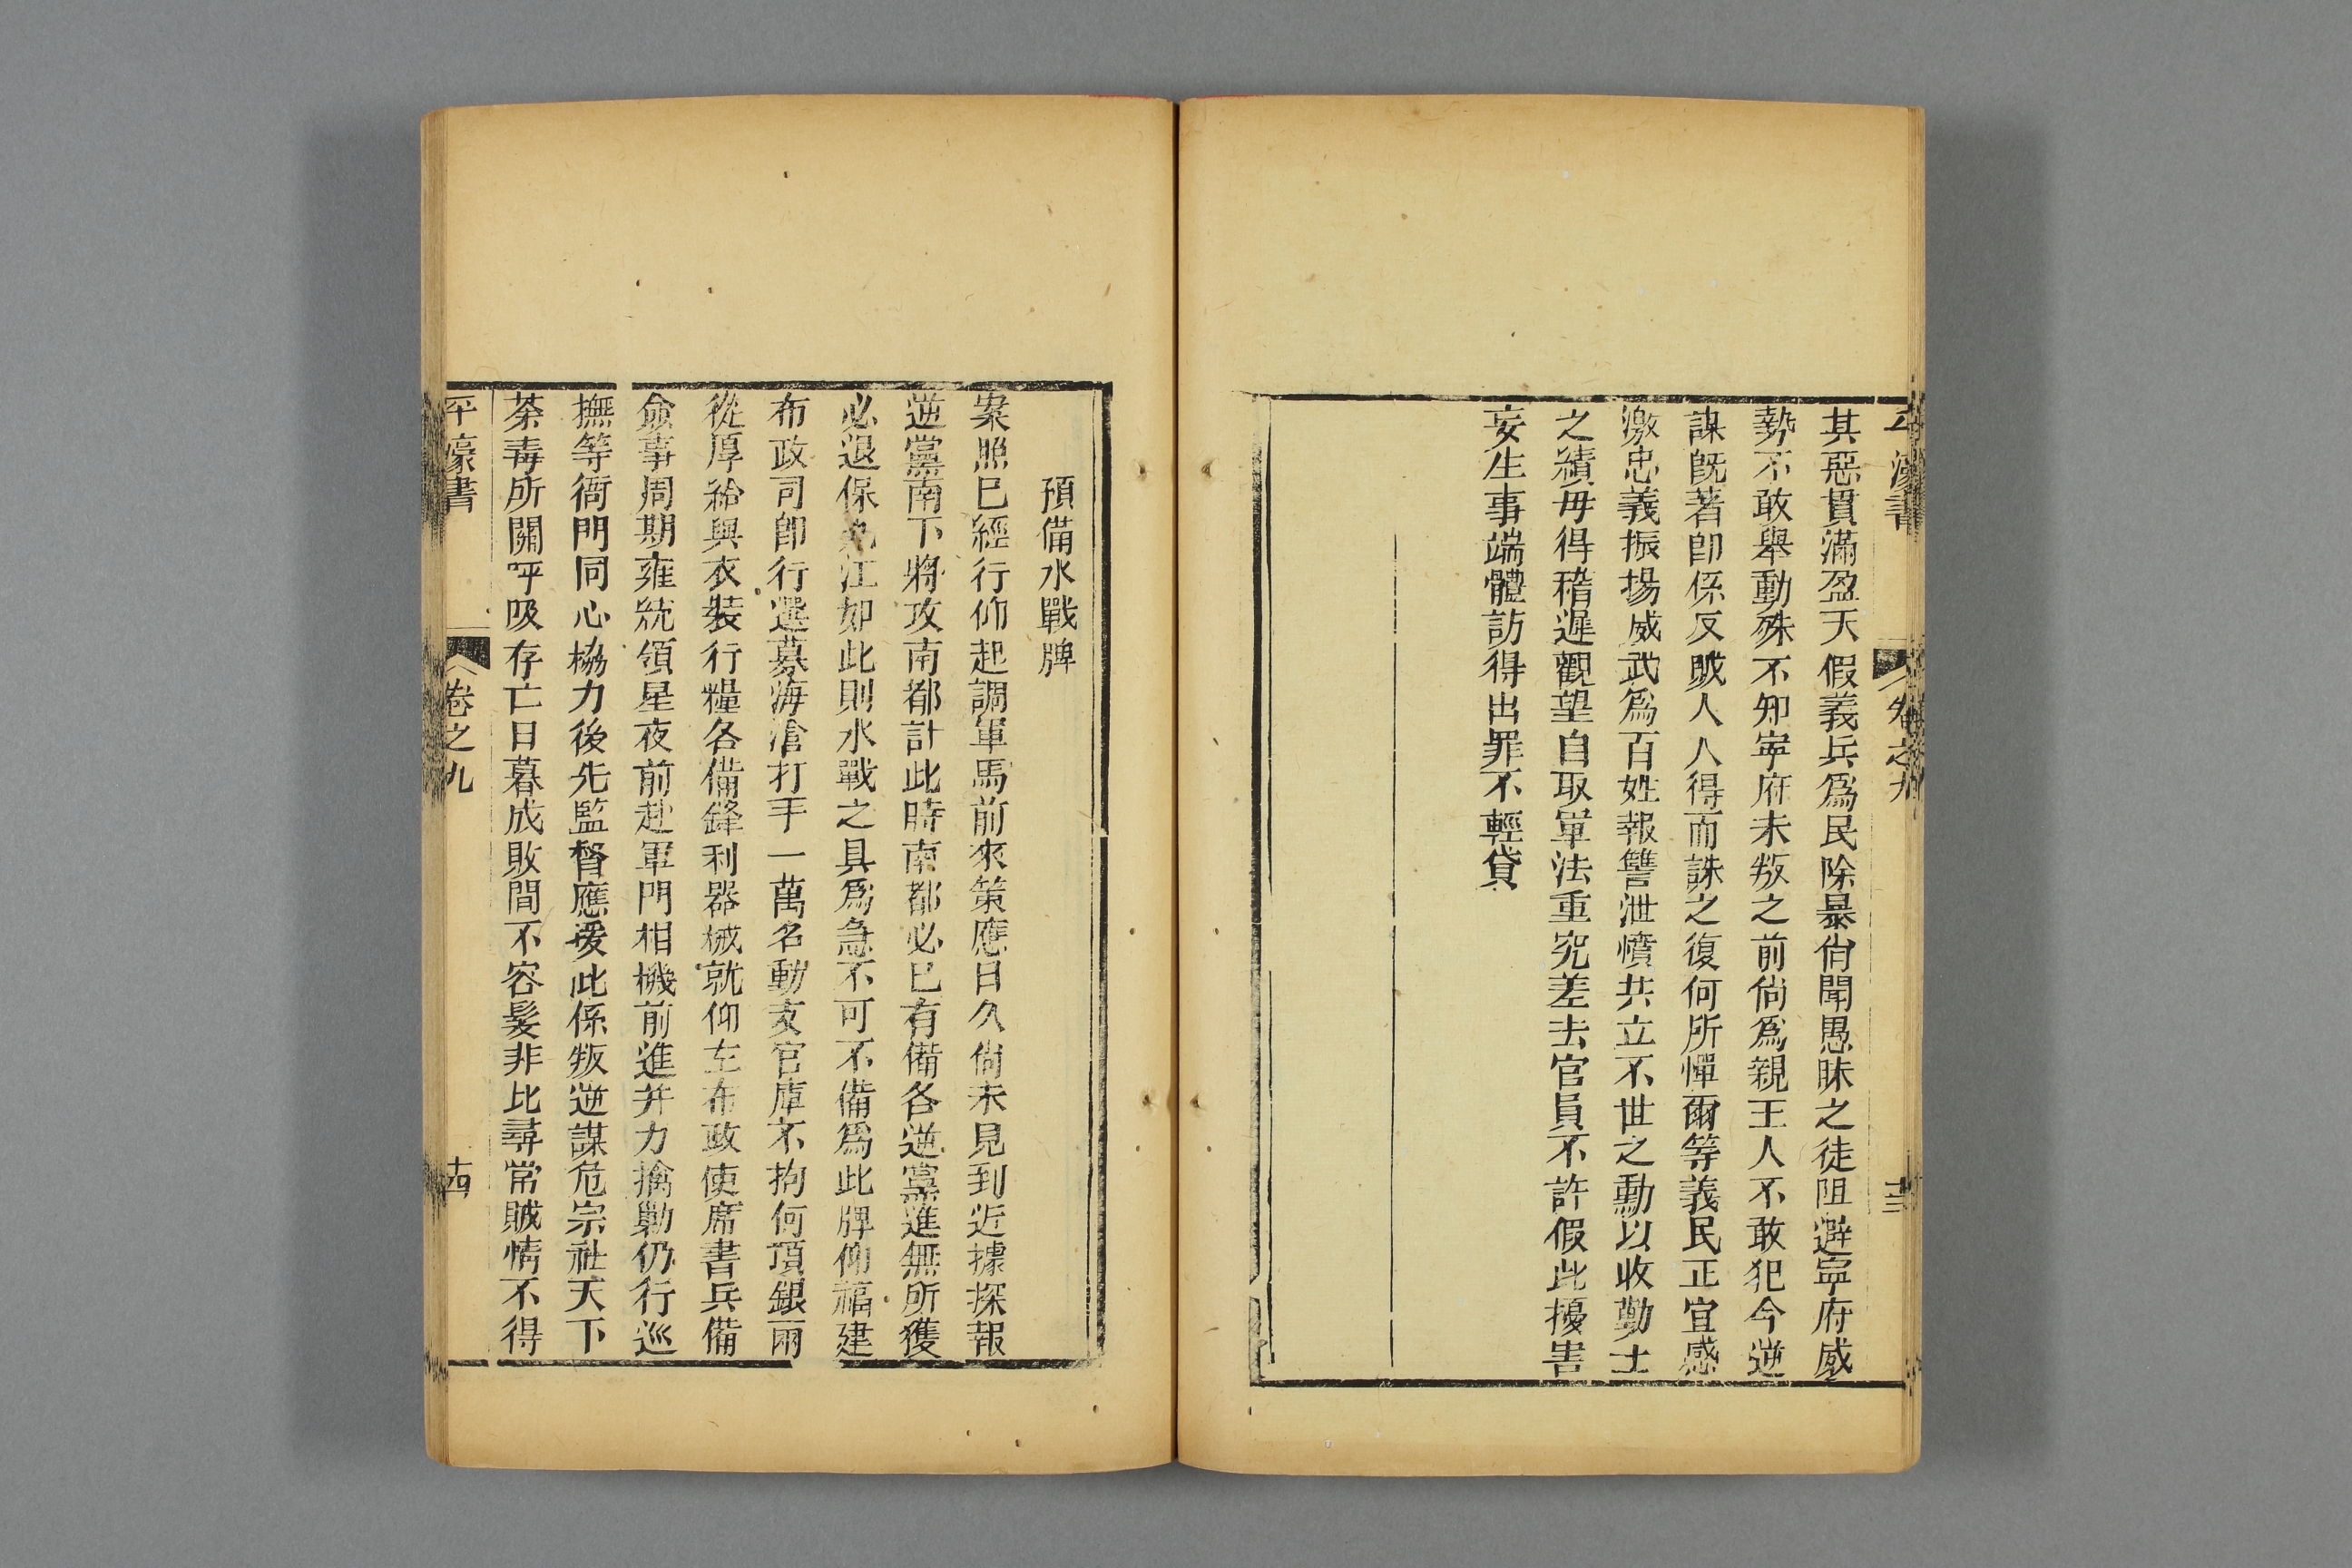 平濠書 卷之九 十三
其惡貫滿盈天假義兵爲民除暴尙聞愚昧之徒阻避寧府威
勢不敢舉動殊不知寧府未叛之前尙爲親王人不敢犯今逆
謀旣著卽係反賊人人得而誅之復何所憚爾等義民正宜感
激忠義振揚威武爲百姓報讐泄憤共立不世之勳以收勤王
之績毋得稽遲觀望自取軍法重究差去官員不許假此擾害
妄生事端體訪得出罪不輕貸
預備水戰牌
案照已經行仰起調軍馬前來策應日久尙未見到近據探報
逆黨南下將攻南都計此時南都必已有備各逆黨進無所獲
必退保九江如此則水戰之具爲急不可不備爲此牌仰福建
布政司卽行選募海滄打手一萬名動支官庫不拘何項銀兩
從厚給與衣裝行糧各備鋒利器械就仰左布政使席書兵備
僉事周期雍統領星夜前赴軍門相機前進并力擒勦仍行巡
撫等衙門同心協力後先監督應援此係叛逆謀危宗社天下
荼毒所關呼吸存亡日暮成敗間不容髮非比尋常賊情不得
平濠書 卷之九 十四